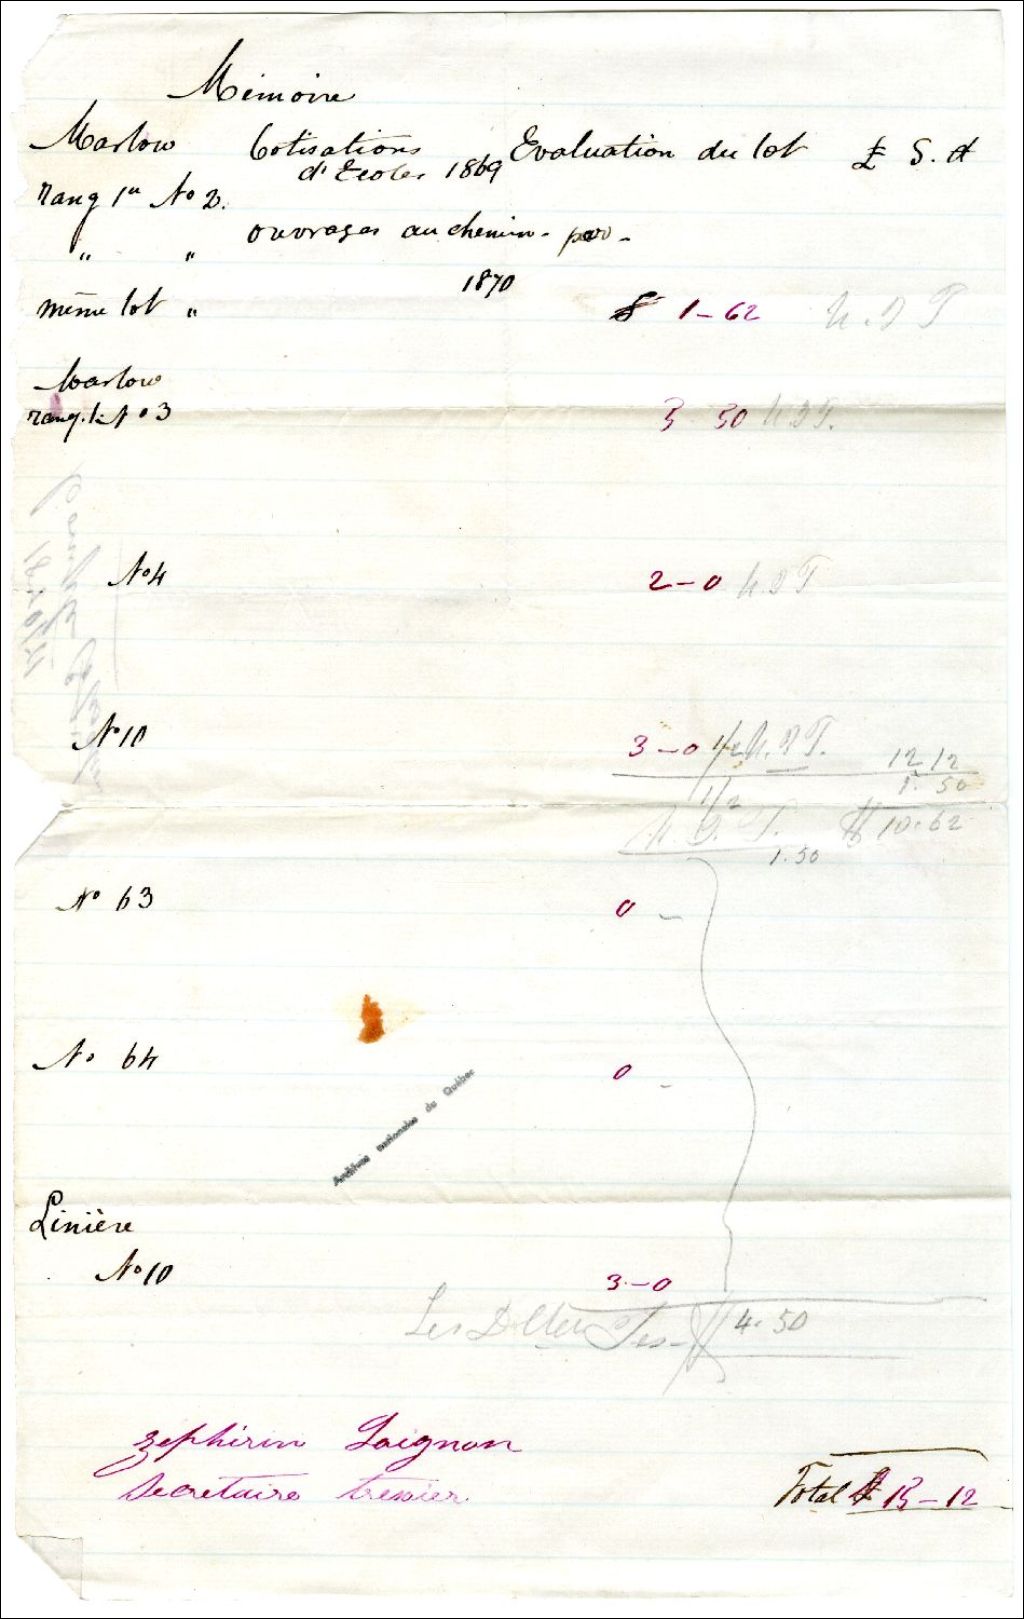 Mémoire
Marlow Cotisations Evaluation du lot £ S. d
d'Ecoles 1869
rang 1er No 2.
" " ouvrages au chemin - par -
1870
même lot " $ 1-62 N. D T
Marlow
rang. 1. No 3 3 50 N. D T.
No 4 2-0 N. D T
No 10 3-0 1/2 N. D T. 12 12
1. 50
1/2
N. D. T. $ 10.62
1.50
No 63 0 -
No 64 0 -
Archives nationales du Québec
Linière
No 10 3-0
$ 4.50
Zephirin Loignon
Secretaire tresier
Total $ 15-12